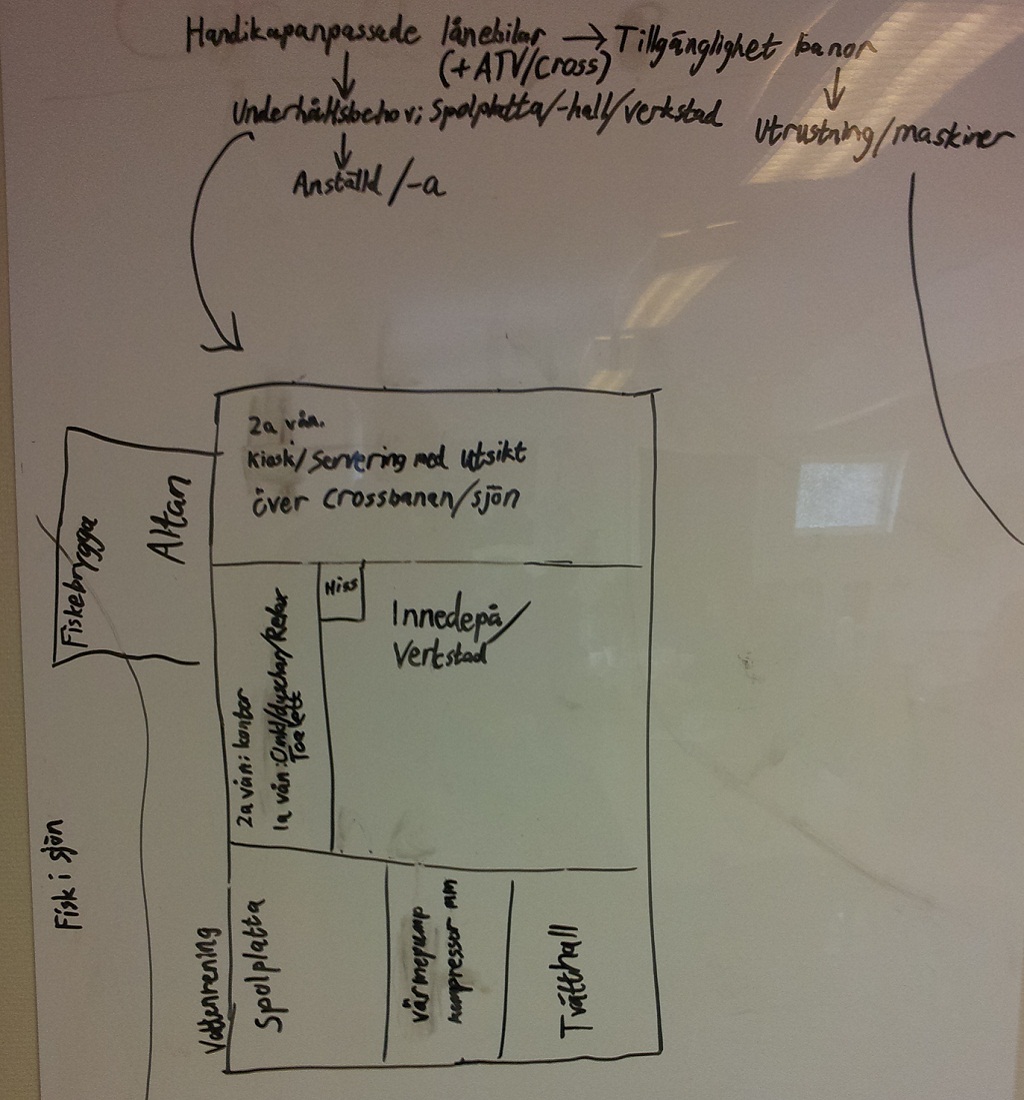 Handikapanpassade lånebilar → Tillgänglighet banor
(+ ATV/cross)
Underhållsbehov; Spolplatta/-hall/verkstad
Utrustning/maskiner
Anställd/-a
2a vån.
Kiosk/Servering med utsikt
över crossbanan/sjön
Altan
Fiskebrygga
Hiss
Innedepå/
Verkstad
2a vån: kontor
1a vån: Omkl/duschar/Relax
Toalett
Fisk i sjön
Vattenrening
Spolplatta
Värmepump
kompressor mm
Tvätthall